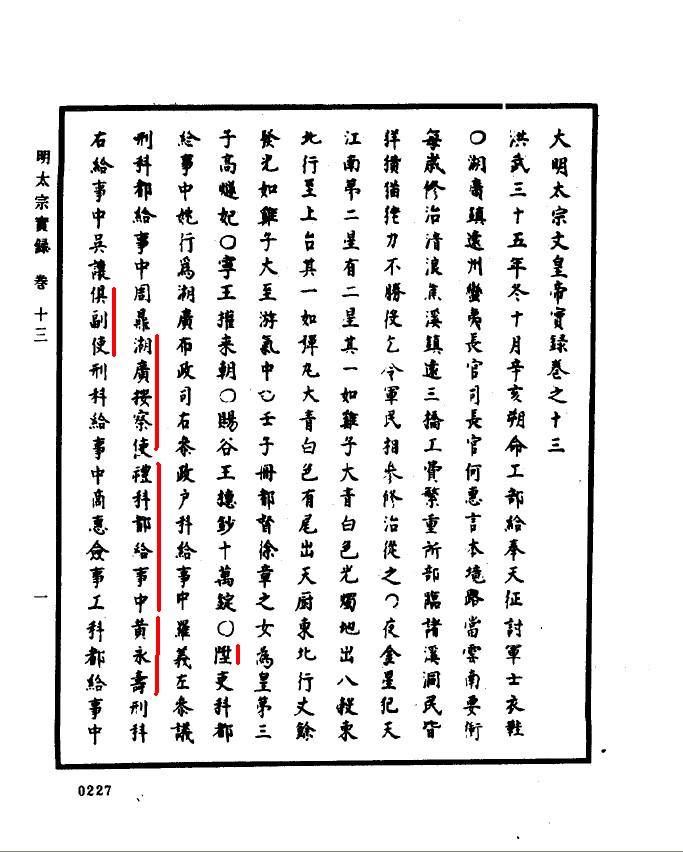 大明太宗文皇帝實錄卷之十三
洪武三十五年冬十月辛亥朔命工部給奉天征討軍士衣鞋
○湖廣鎮遠州蠻夷長官司長官何惠言本境路當雲南要衝
每歲修治清浪焦溪鎮遠三橋工費繁重所部臨諸溪洞民皆
猺獚猫狫力不勝役乞令軍民相參修治從之○夜金星犯天
江南第二星有二星其一如雞子大青白色光燭地出八穀東
北行至上台其一如彈丸大青白色有尾出天厨東北行丈餘
發光如雞子大至游氣中○壬子冊都督徐章之女為皇第三
子高燧妃○寧王權來朝○賜谷王橞鈔十萬錠○陞吏科都
給事中姚行為湖廣布政司右參政户科給事中羅義左參議
刑科都給事中周鼎湖廣按察使禮科都給事中黃永壽刑科
右給事中吳讓俱副使刑科給事中高惠僉事工科都給事中
明太宗實錄 卷十三
一
0227